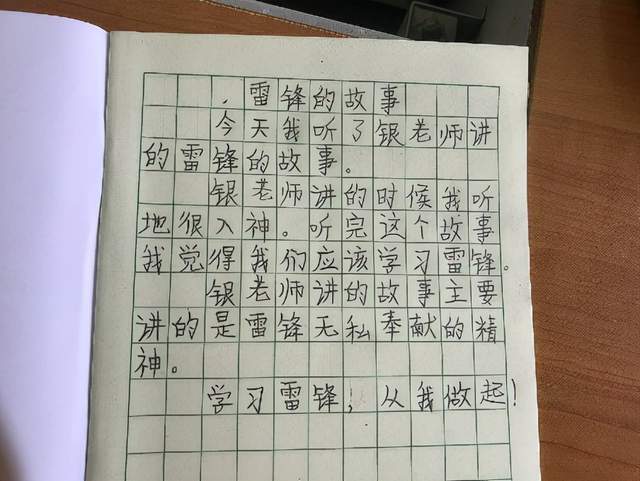 雷锋的故事
今天我听了银老师讲
的雷锋的故事。
银老师讲的时候我听
地很入神。听完这个故事
我觉得我们应该学习雷锋。
银老师讲的故事主要
讲的是雷锋无私奉献的精
神。
学习雷锋，从我做起！